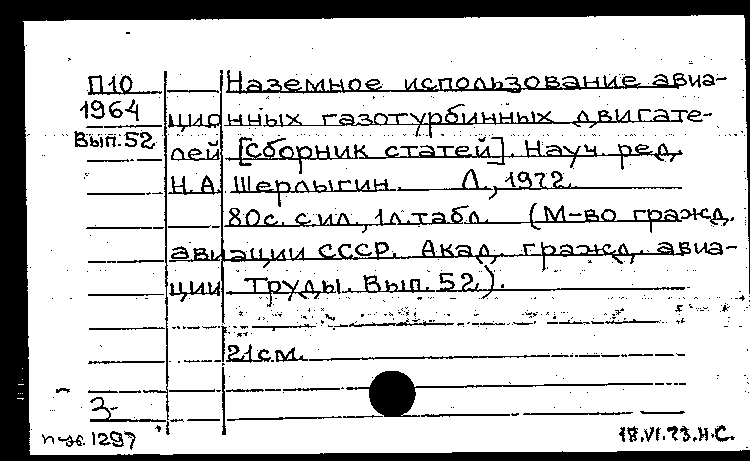 П10
1964
Вып.52
Наземное использование авиа-
ционных газотурбинных двигате-
лей [сборник статей]. Науч. ред.
Н.А. Шерлыгин. Л., 1972.
80с. с ил., 1л.табл. (М-во гражд.
авиации СССР. Акад. гражд. авиа-
ции. Труды. Вып. 52).
21см.
3-
1297
18.VI.73.Н.С.